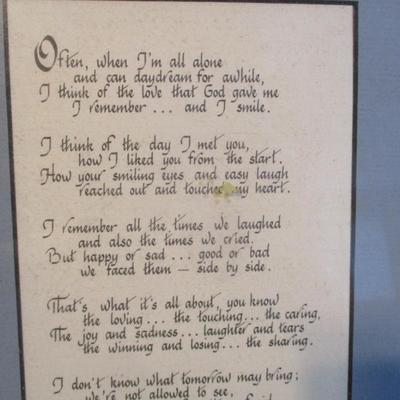 Often, when I'm all alone
and can daydream for awhile,
I think of the love that God gave me
I remember ... and I smile.
I think of the day I met you,
how I liked you from the start.
How your smiling eyes and easy laugh
reached out and touched my heart.
I remember all the times we laughed
and also the times we cried.
But happy or sad ... good or bad
we faced them — side by side.
That's what it's all about, you know
the loving... the touching... the caring,
The joy and sadness... laughter and tears
the winning and losing... the sharing.
I don't know what tomorrow may bring;
we're not allowed to see,